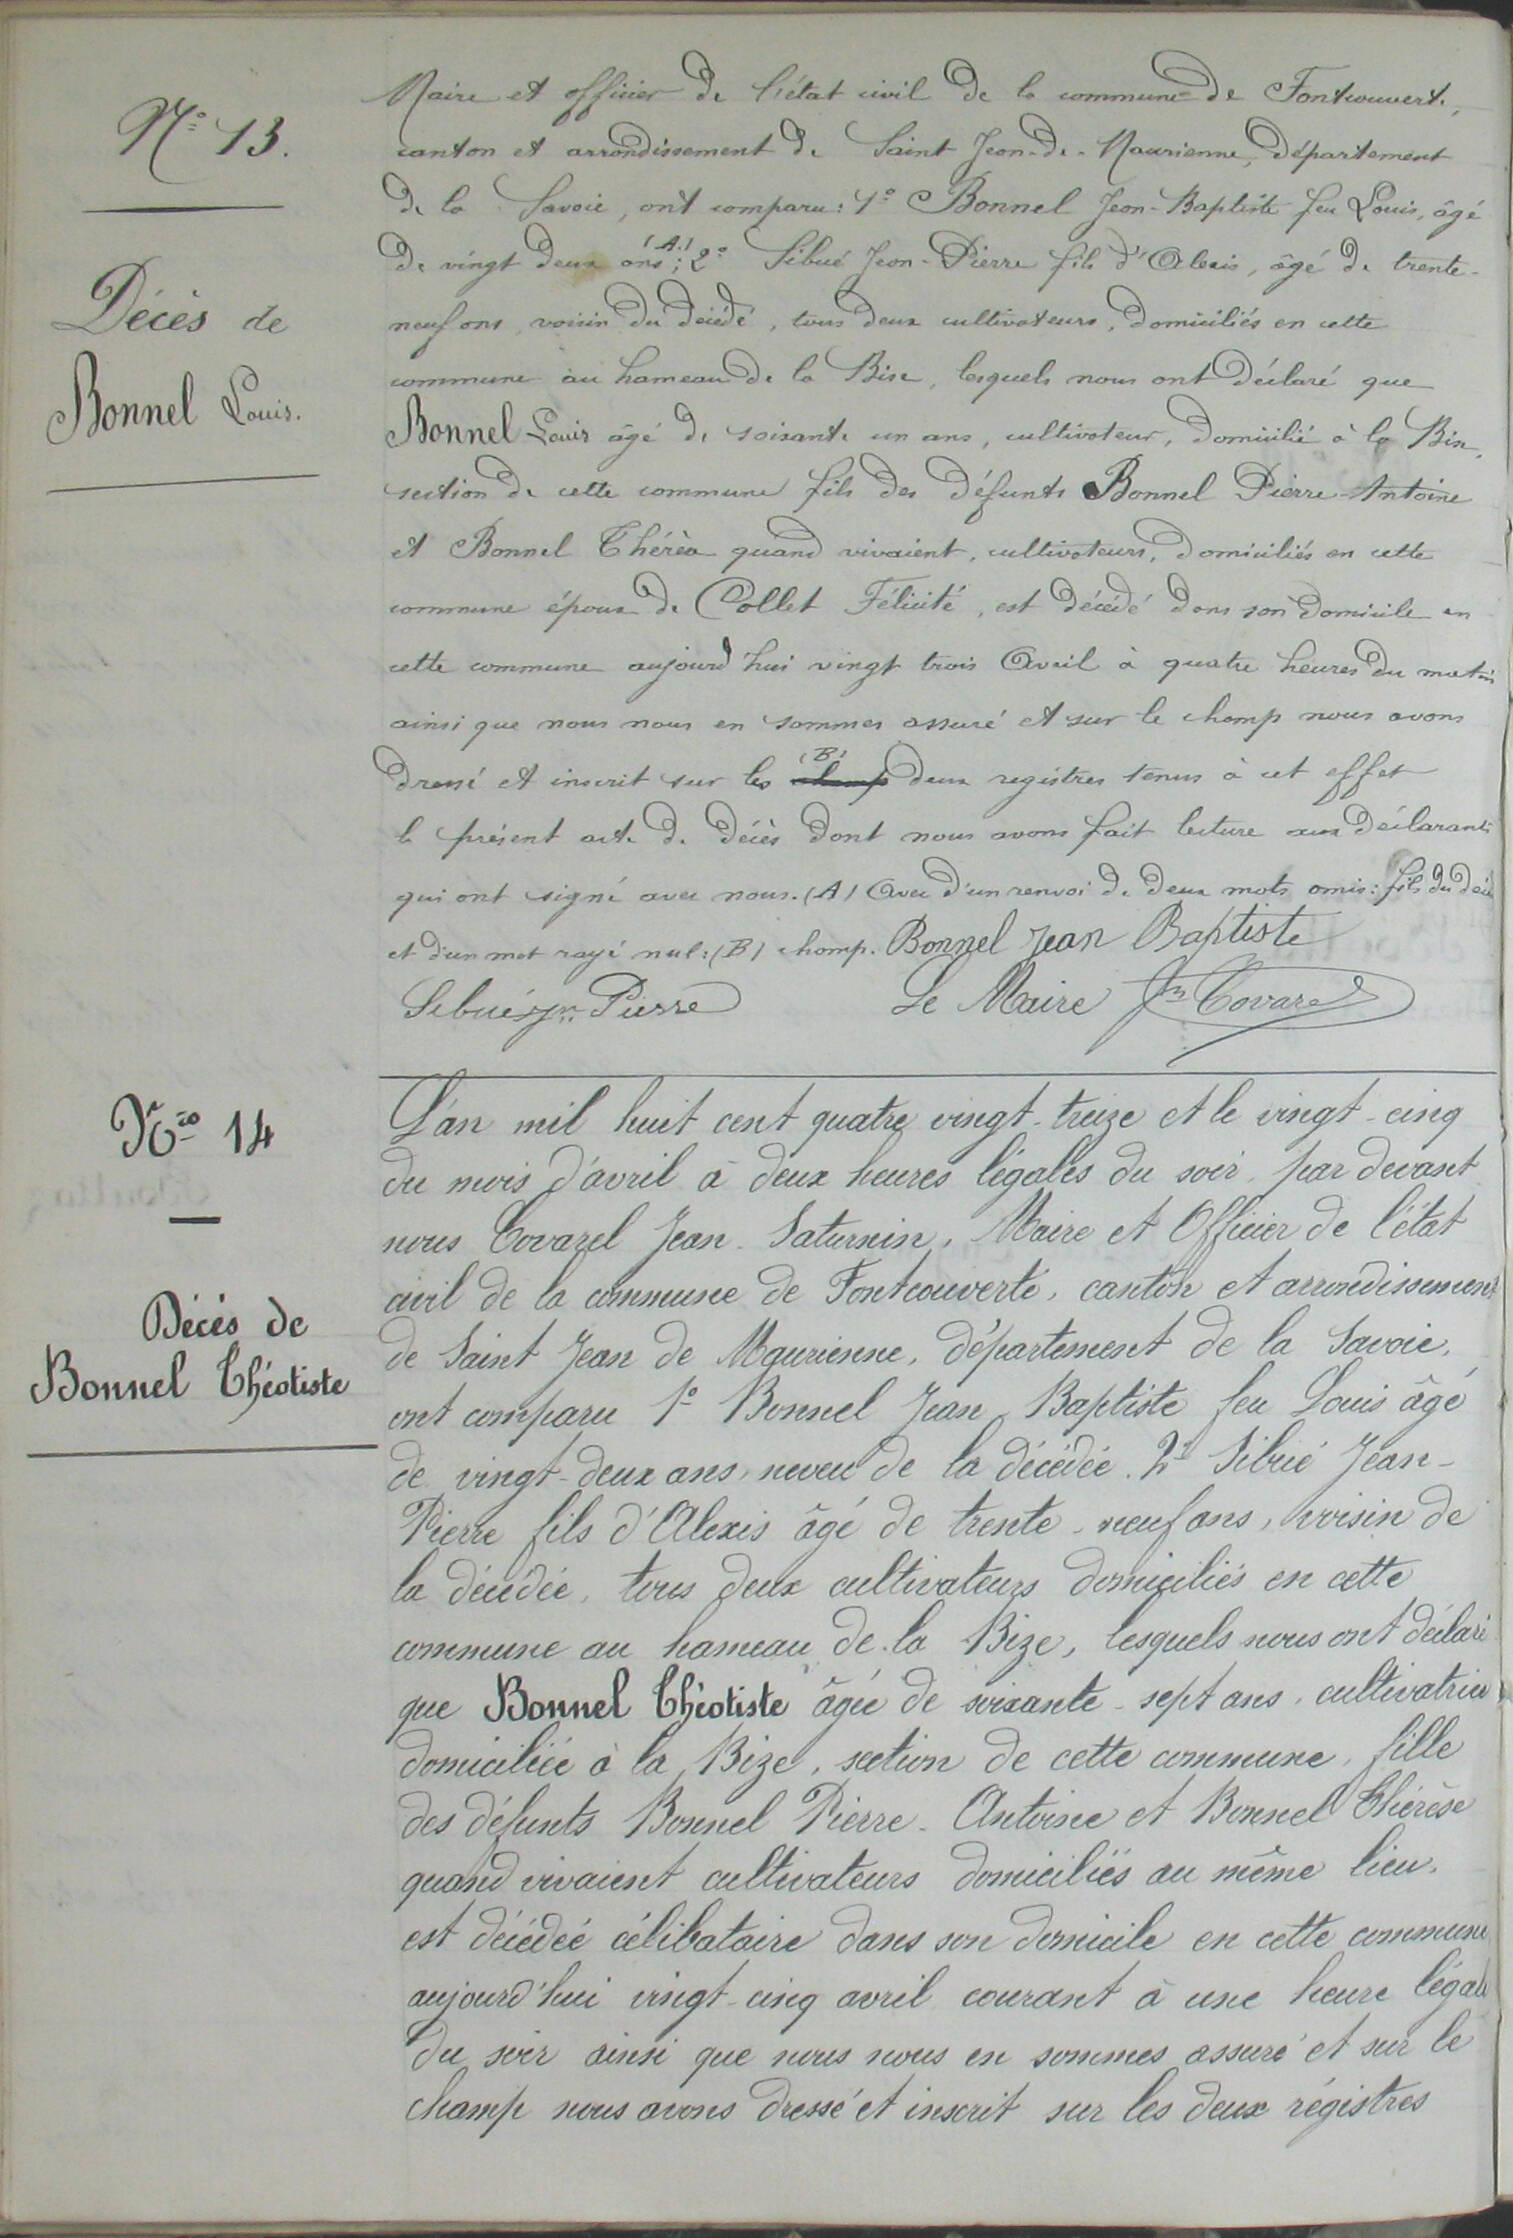 N.º 13.
Décès de
Bonnel Louis.
Maire et officier de l'état civil de la commune de Fontcouverte,
canton et arrondissement de Saint Jean-de-Maurienne, département
de la Savoie, ont comparu : 1º Bonnel Jean-Baptiste feu Louis, âgé
de vingt deux ans (A) ; 2º Sibué Jean-Pierre fils d'Alexis, âgé de trente-
neuf ans, voisin du décédé, tous deux cultivateurs, domiciliés en cette
commune au hameau de la Bise, lesquels nous ont déclaré que
Bonnel Louis âgé de soixante un ans, cultivateur, domicilié à la Bise,
section de cette commune fils des défunts Bonnel Pierre-Antoine
et Bonnel Thérèse quand vivaient, cultivateurs, domiciliés en cette
commune époux de Collet Félicité, est décédé dans son domicile en
cette commune aujourd'hui vingt trois Avril à quatre heures du matin
ainsi que nous nous en sommes assuré et sur le champ nous avons
dressé et inscrit sur les (B) champ deux registres tenus à cet effet
le présent acte de décès dont nous avons fait lecture aux déclarants
qui ont signé avec nous. (A) Avec d'un renvoi de deux mots omis : fils du décédé
et d'un mot rayé nul : (B) champ. Bonnel Jean Baptiste
Sibué Jn Pierre Le Maire Jn Covarel
Nro 14
Décès de
Bonnel Théotiste
L'an mil huit cent quatre vingt-treize et le vingt-cinq
du mois d'avril à deux heures légales du soir, par devant
nous Covarel Jean-Saturnin, Maire et Officier de l'état
civil de la commune de Fontcouverte, canton et arrondissement
de Saint Jean de Maurienne, département de la Savoie,
ont comparu 1º Bonnel Jean Baptiste feu Louis âgé
de vingt-deux ans, neveu de la décédée. 2º Sibué Jean-
Pierre fils d'Alexis âgé de trente-neuf ans, voisin de
la décédée, tous deux cultivateurs domiciliés en cette
commune au hameau de la Bize, lesquels nous ont déclaré
que Bonnel Théotiste âgée de soixante-sept ans, cultivatrice
domiciliée à la Bize, section de cette commune, fille
des défunts Bonnel Pierre-Antoine et Bonnel Thérèse
quand vivaient cultivateurs domiciliés au même lieu,
est décédée célibataire dans son domicile en cette commune
aujourd'hui vingt-cinq avril courant à une heure légale
du soir ainsi que nous nous en sommes assuré et sur le
champ nous avons dressé et inscrit sur les deux régistres